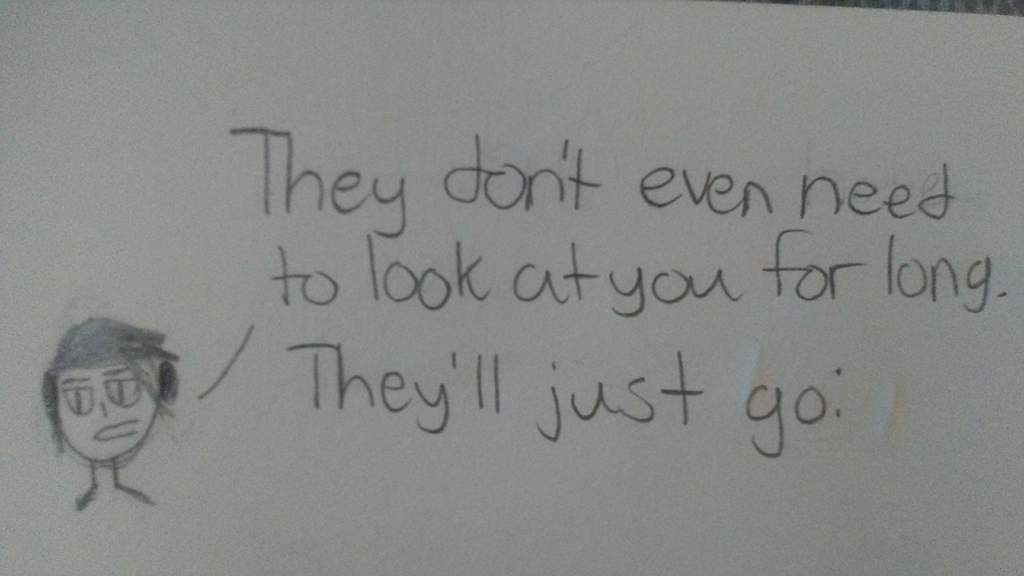 They don't even need
to look at you for long.
They'll just go: